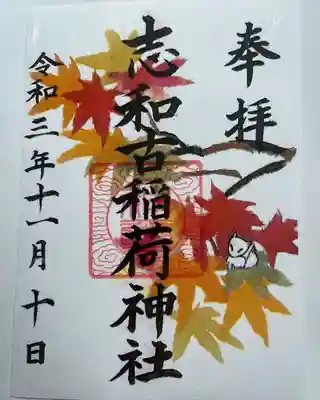 奉拝
志和古稲荷神社
令和三年十一月十日